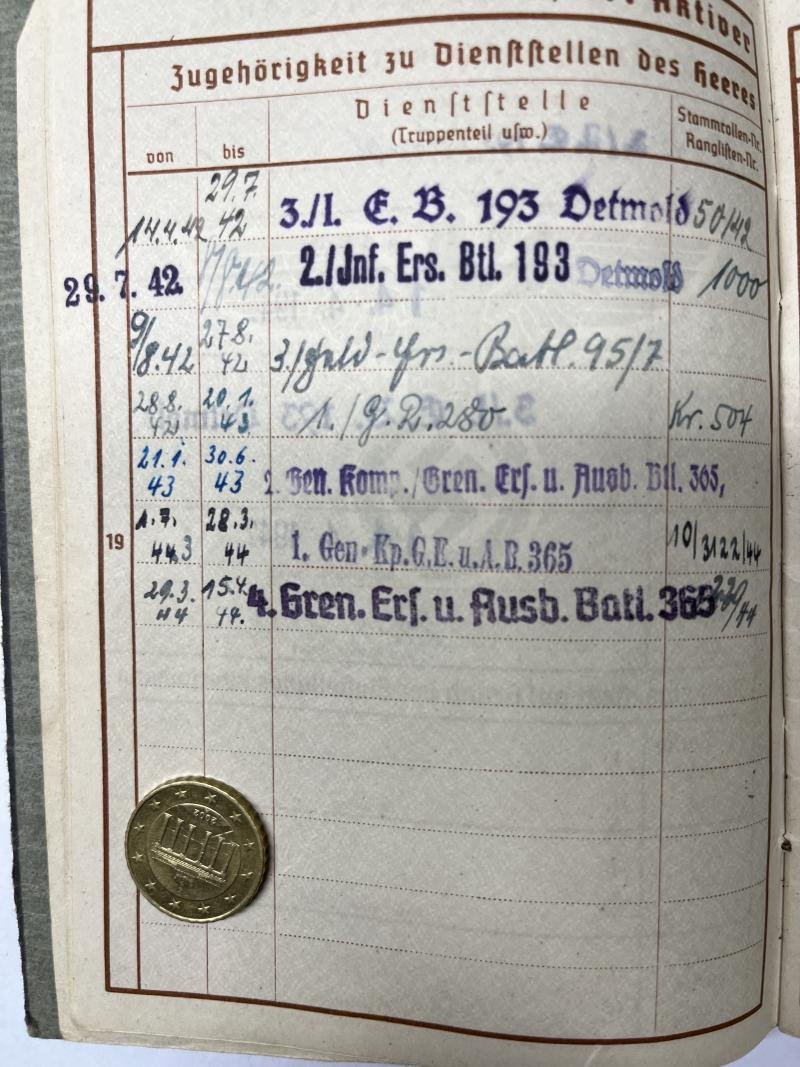 Aktiver
Zugehörigkeit zu Dienststellen des Heeres
von bis Dienststelle (Truppenteil usw.) Stammrollen-Nr. Ranglisten-Nr.
14.4.42 29.7. 42 3./I. E. B. 193 Detmold 50/42
29. 7. 42. 2./Inf. Ers. Btl. 193 Detmold 1000
9/8.42 27.8. 42 3./Feld-Ers.-Batl. 95/7
28.8. 42 20.1. 43 1./G.R. 280 Kr. 504
21.1. 43 30.6. 43 2. Gen. Komp./Gren. Ers. u. Ausb. Btl. 365,
19
1.7. 28.3. 44 1. Gen-Kp.G.E.u.A.B.365 10/3122/44
29.3. 44 15.4. 44. 4. Gren. Ers. u. Ausb. Batl. 365
2002